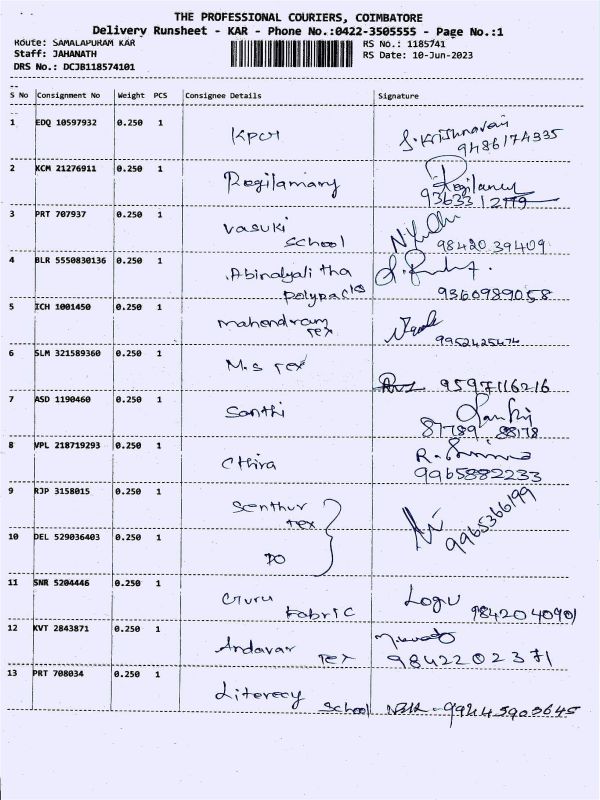 THE PROFESSIONAL COURIERS, COIMBATORE
Delivery Runsheet - KAR - Phone No.:0422-3505555 - Page No.:1
Route: SAMALAPURAM KAR
RS No.: 1185741
Staff: JAHANATH
RS Date: 10-Jun-2023
DRS No.: DCJB118574101
S No Consignment No Weight PCS Consignee Details Signature
1 EDQ 10597932 0.250 1 KPCT S. Krishnaraj
9486174335
2 KCM 21276911 0.250 1 Regilamary
93633 12119
3 PRT 707937 0.250 1 vasuki
school 98420 39409
4 BLR 5550830136 0.250 1
polypacks 9360989058
5 ICH 1001450 0.250 1 mahendram
tex 9952425474
6 SLM 321589360 0.250 1 M.s Tex
9597116216
7 ASD 1190460 0.250 1 Santhi
87789 88178
8 VPL 218719293 0.250 1 Chira
9965882233
9 RJP 3158015 0.250 1 Senthur
tex 9965366199
10 DEL 529036403 0.250 1 DO
11 SNR 5204446 0.250 1 Guru
Fabric Logu 9842040901
12 KVT 2843871 0.250 1 Andavar
Tex 9842202371
13 PRT 708034 0.250 1 Literecy
School 99445903645